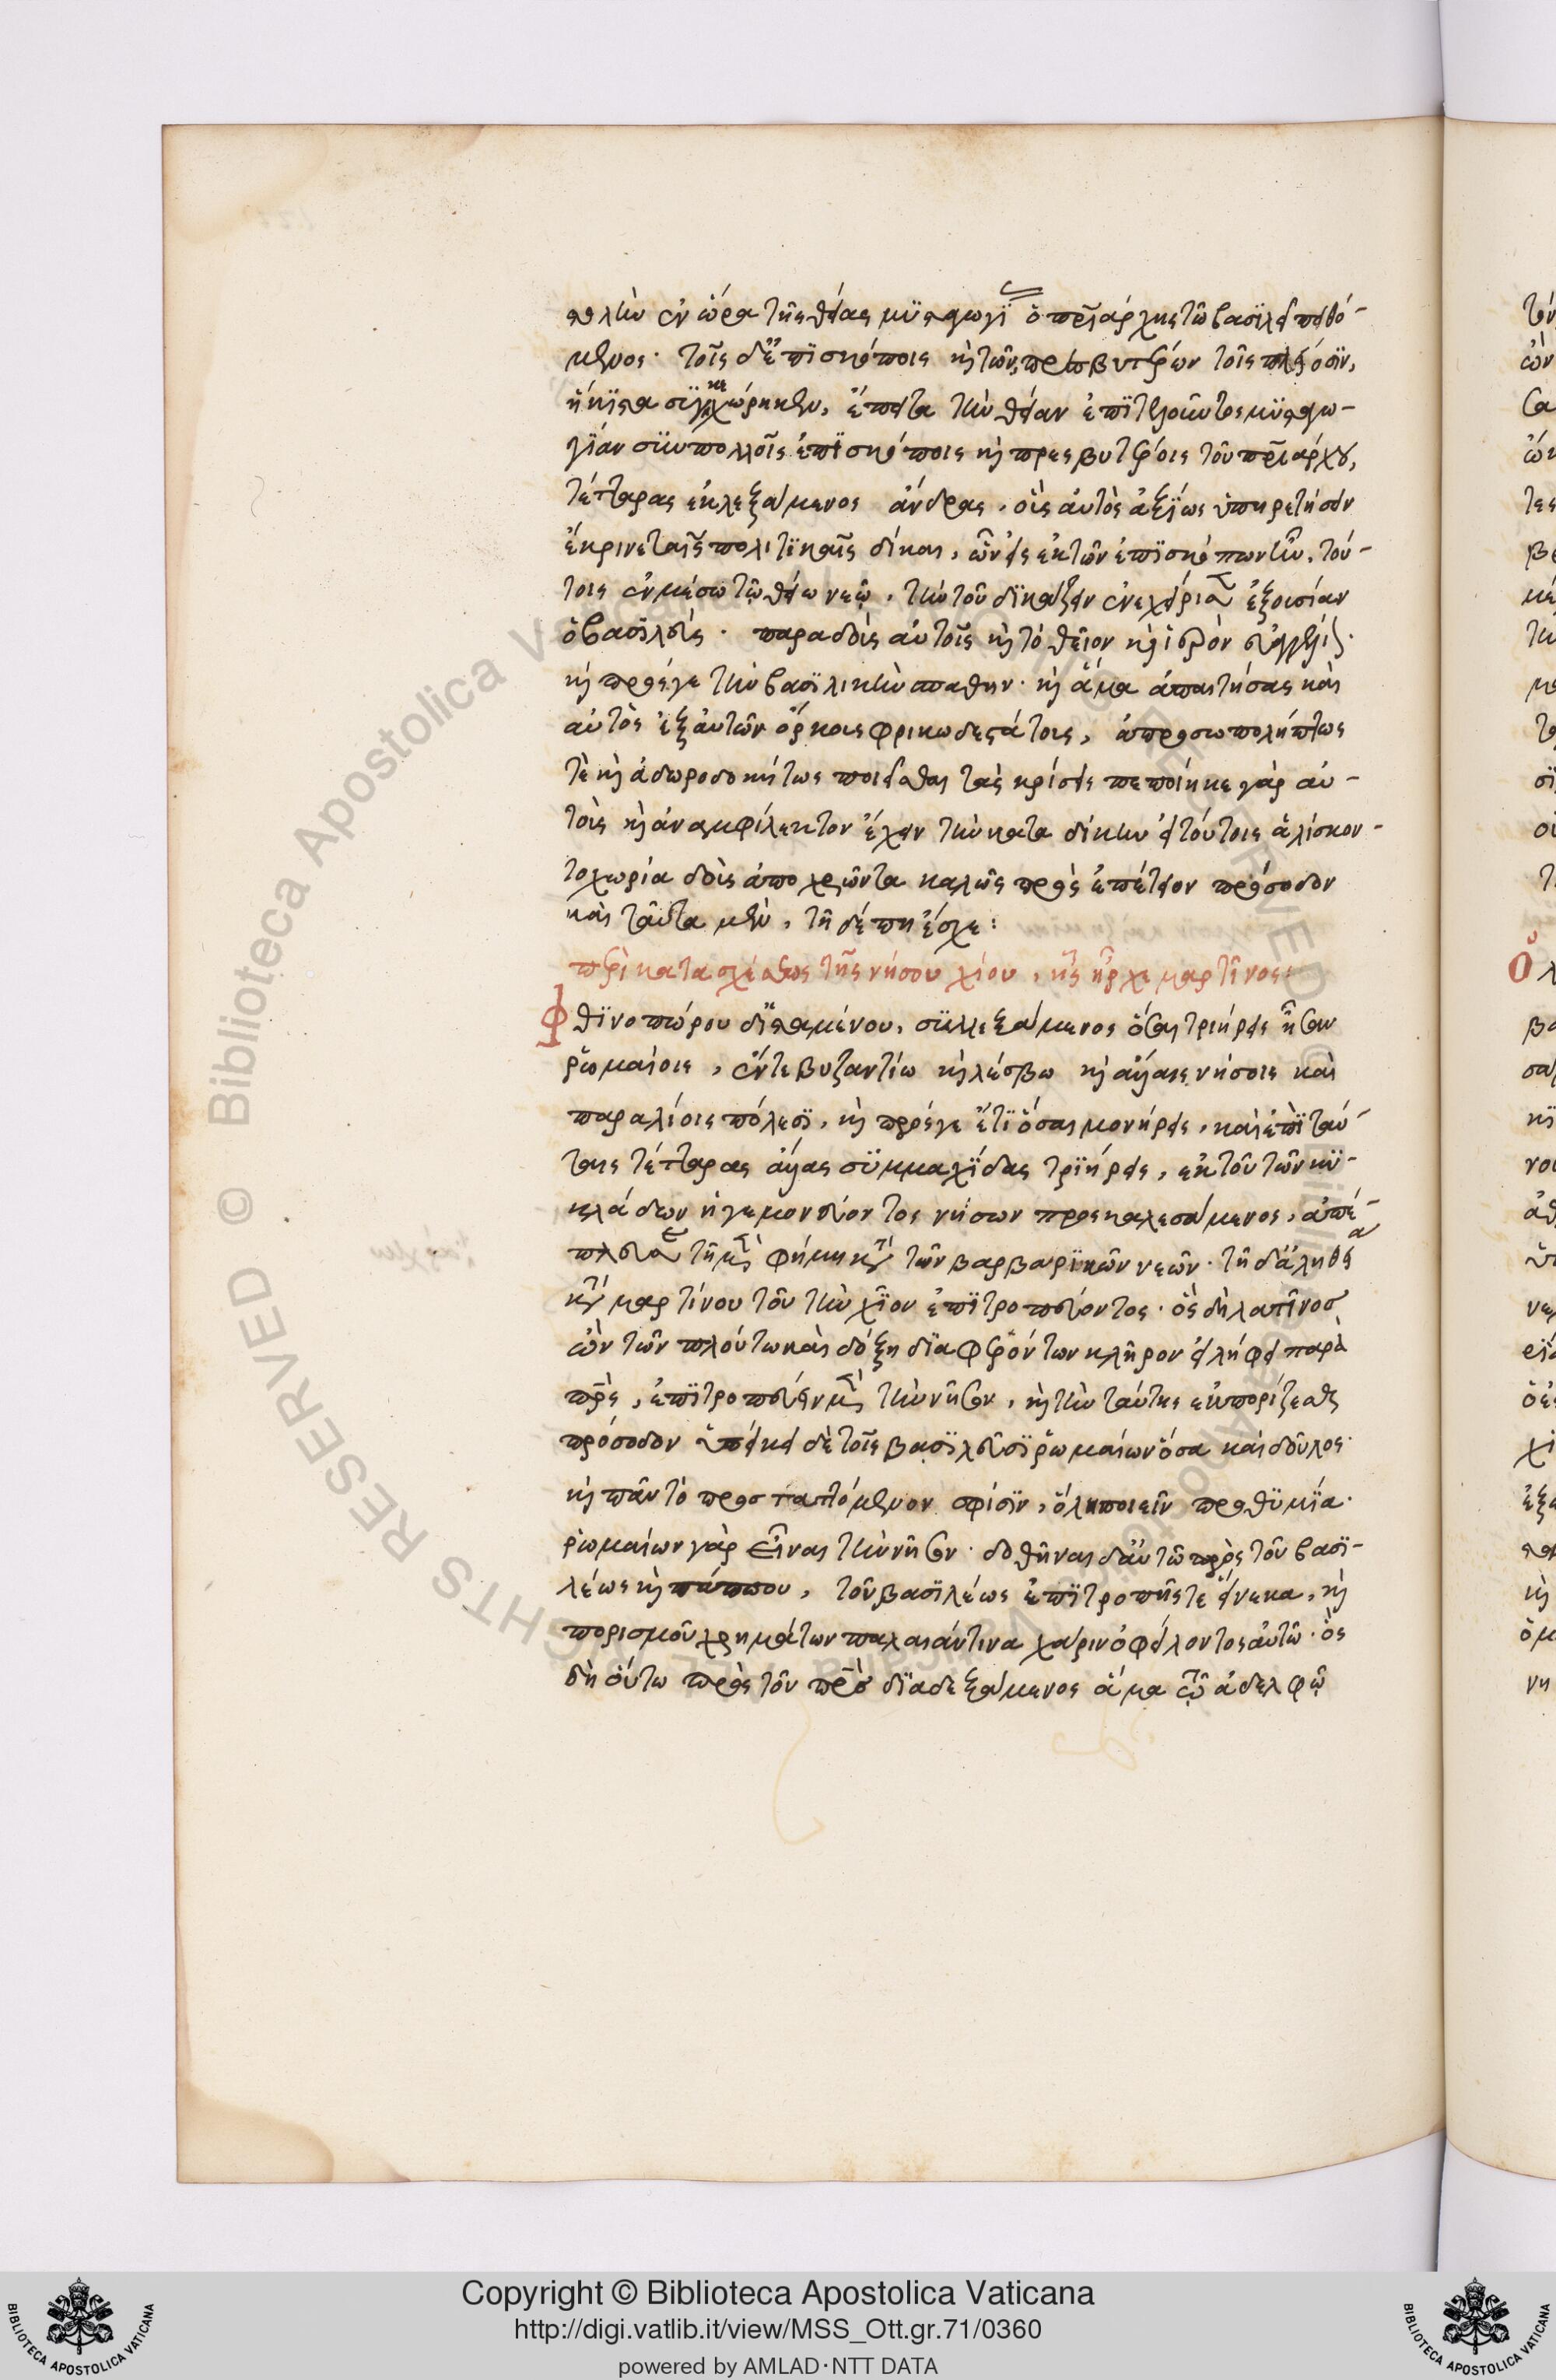 στολὴν ἐν ὥρα τῆς θείας μυσταγωγί ὁ πρῖάρχης τῶ βασιλεῖ πειθό-
μενος· τοῖς δ' ἐπισκόποις καὶ τῶν πρεσβυτέρων τοῖς πλείοσιν,
ἥκιστα συγκεχώρηκεν, ἔπειτα τὴν θείαν ἐπιτελοῦντος μυσταγω-
γίαν σὺν πολλοῖς ἐπισκόποις καὶ πρεσβυτέροις τοῦ πρῖάρχου,
τέτταρας ἐκλεξάμενος ἄνδρας, οἷς αὐτὸς ἀξίως ὑπηρετήσειν
ἐκρίνε ταῖς πολιτικαῖς δίκαις, ὧν εἷς ἐκ τῶν ἐπισκόπων ἦν, τού-
τοις ἐν μέσω τῷ θείω νεῷ, τὴν τοῦ δικάζειν ἐνεχείρισεν ἐξουσίαν
ὁ βασιλεύς· παραδοὺς αὐτοῖς καὶ τὸ θεῖον καὶ ἱερὸν εὐαγγέλιον·
καὶ πρόσγε τὴν βασιλικὴν σπάθην· καὶ ἅμα ἀπαιτήσας καὶ
αὐτὸς ἐξ αὐτῶν ὅρκοις φρικωδεστάτοις, ἀπροσωπολήπτως
τὲ καὶ ἀδωροδοκήτως ποιεῖσθαι τὰς κρίσεις πεποίηκε γὰρ αὐ-
τοῖς καὶ ἀναμφίλεκτον ἔχειν τὴν κατα δίκην εἰ τούτοις ἁλίσκον-
το χωρία δοὺς ἀποχρῶντα καλῶς πρὸς ἐπέτειον πρόσοδον
καὶ ταῦτα μὲν, τῆδέ πη ἔσχε:
περὶ κατασχέσεως τῆς νήσου χίου, ἧς ἦρχε μαρτῖνος:
Φθινοπώρου δ' ἱσταμένου, συλλεξάμενος ὅσαι τριήρεις ἦσαν
ῥωμαίοις, ἔν τε βυζαντίω καὶ λέσβω καὶ ἄλλαις νήσοις καὶ
παραλίοις πόλεσι, καὶ πρόσγε ἔτι ὅσαι μονήρεις, καὶ ἐπὶ ταύ-
ταις τέτταρας ἄλλας συμμαχίδας τριήρεις, ἐκ τοῦ τῶν κυ-
κλάδων ἡγεμονεύοντος νήσων προσκαλεσάμενος, ἀπέ-
πλευσε τῆ μὲν φήμη κατὰ τῶν βαρβαρικῶν νεῶν· τῆ δ' ἀληθεία
κατὰ μαρτίνου τοῦ τὴν χίον ἐπιτροπεύοντος· ὃς δὴ λατῖνος
ὢν τῶν πλούτω καὶ δόξη διαφερόντων κλῆρον εἰλήφει παρὰ
πρς, ἐπιτροπεύειν μὲν τὴν νῆσον, καὶ τὴν ταύτης ἐκπορίζεσθαι
πρόσοδον ὑπείκει δὲ τοῖς βασιλεῦσι ῥωμαίων ὅσα καὶ δοῦλος·
καὶ πᾶν τὸ προσταττόμενον σφίσιν, ὅλη ποιεῖν προθυμία·
ῥωμαίων γὰρ εἶναι τὴν νῆσον· δοθῆναι δ' αὐτῶ πρὸς τοῦ βασι-
λέως καὶ πάππου, τοῦ βασιλέως ἐπιτροπῆς τε ἕνεκα, καὶ
πορισμοῦ χρημάτων παλαιάν τινα χάριν ὀφείλοντος αὐτῶ· ὃς
δὴ οὕτω πρὸς τοῦ πρς διαδεξάμενος ἅμα τῷ ἀδελφῷ
Copyright © Biblioteca Apostolica Vaticana
http://digi.vatlib.it/view/MSS_Ott.gr.71/0360
powered by AMLAD·NTT DATA